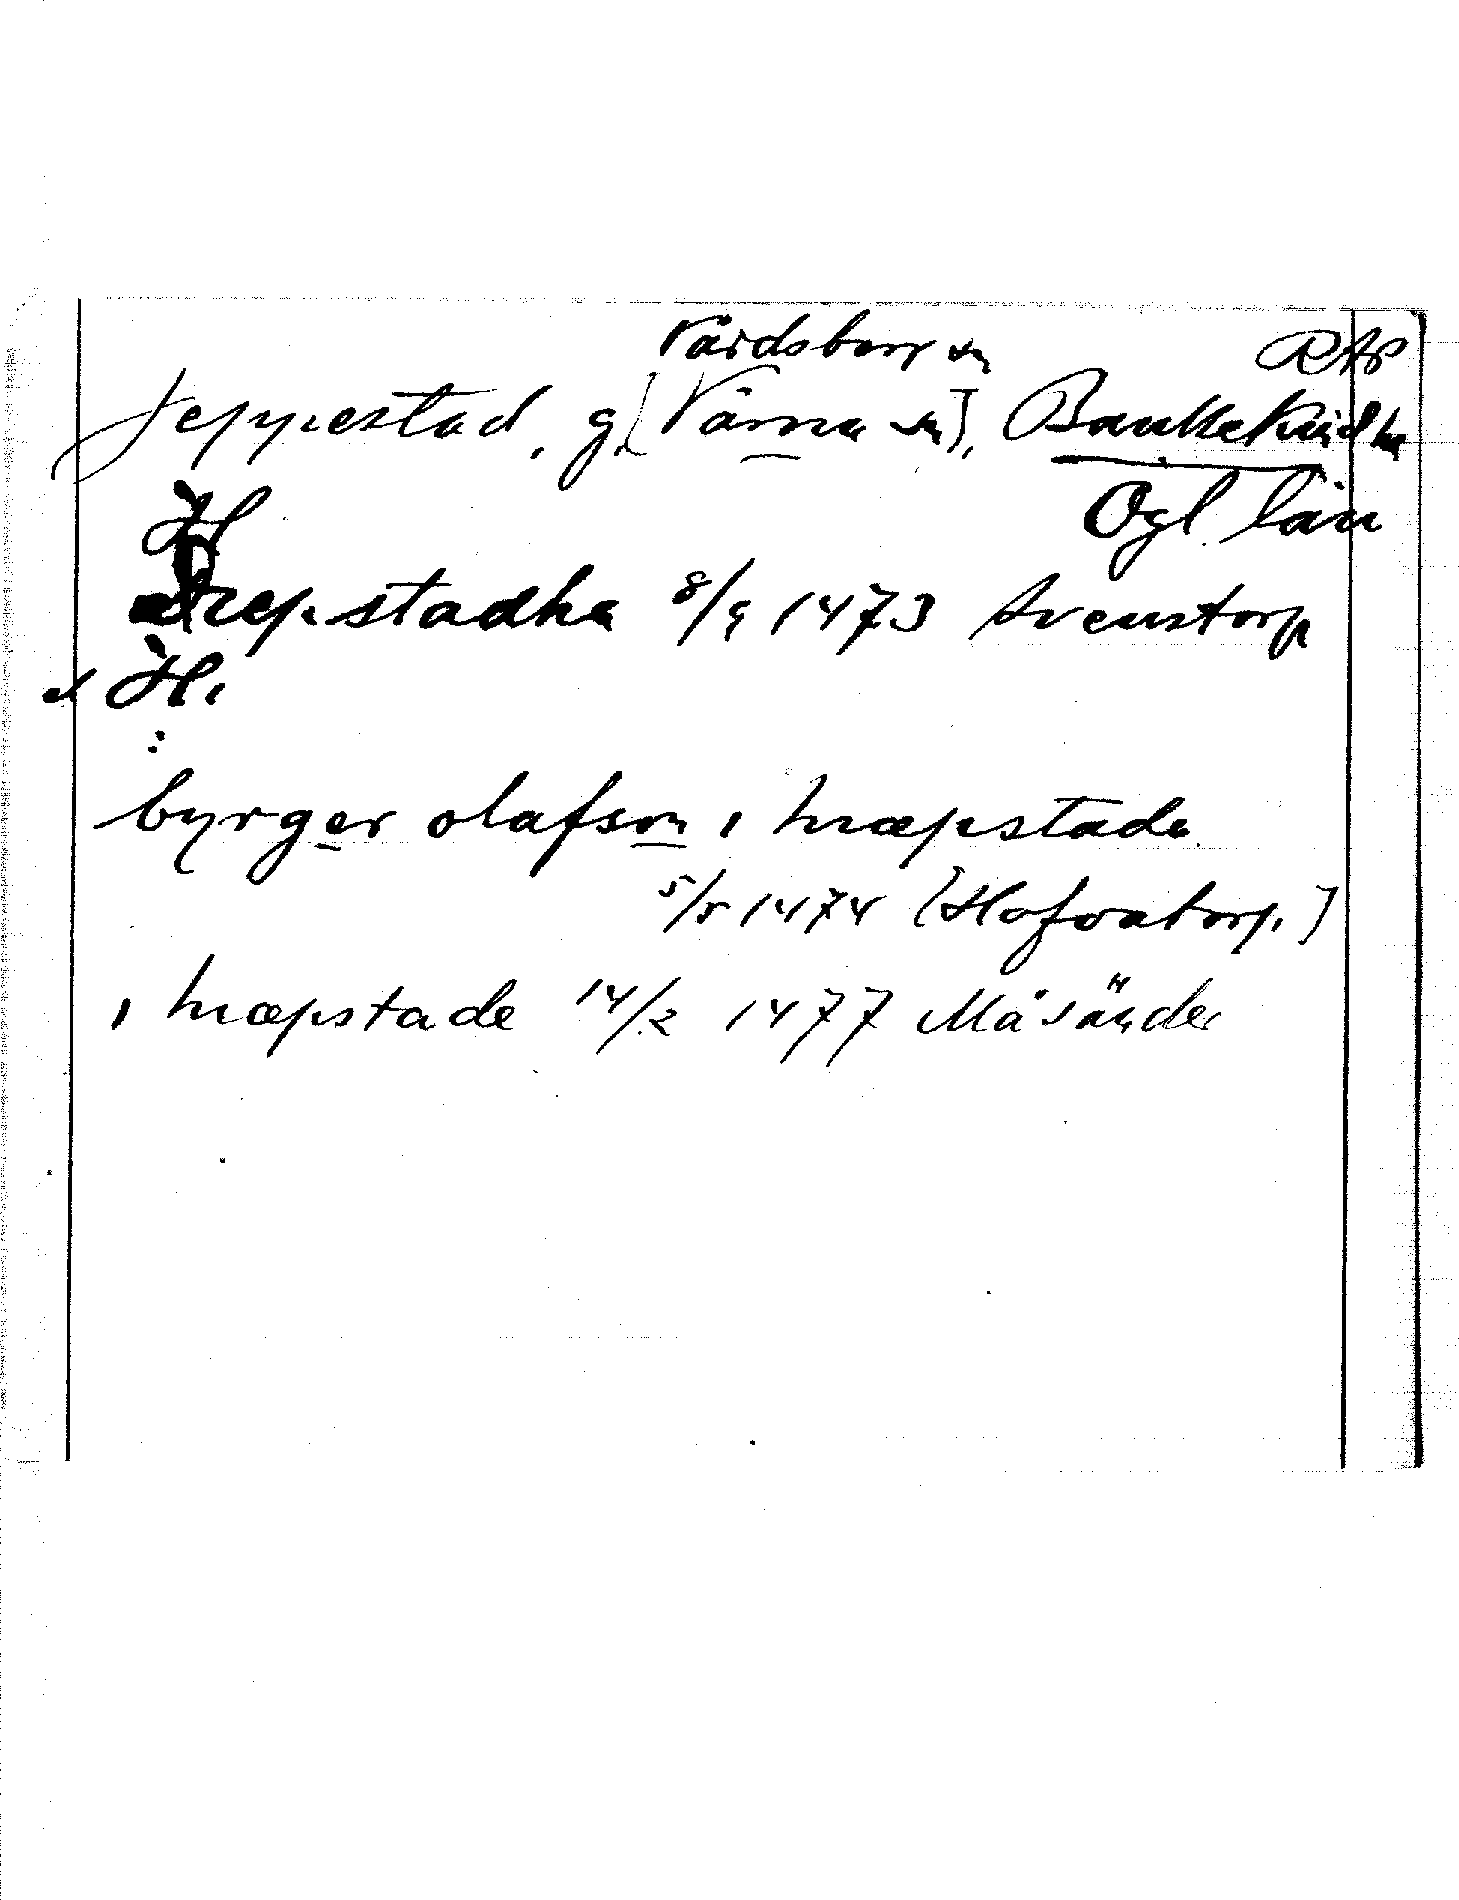 Vårdsberg sn RAP
Jeppestad, g [Värna sn], Bankekinds h
Ögl. län
H
ræpstadha 8/9 1473 Svenstorp
el H.
byrger olafson i hræpstada
5/5 1474 [Hofvatorp.]
i hræpstade 14/2 1477 Måsänder